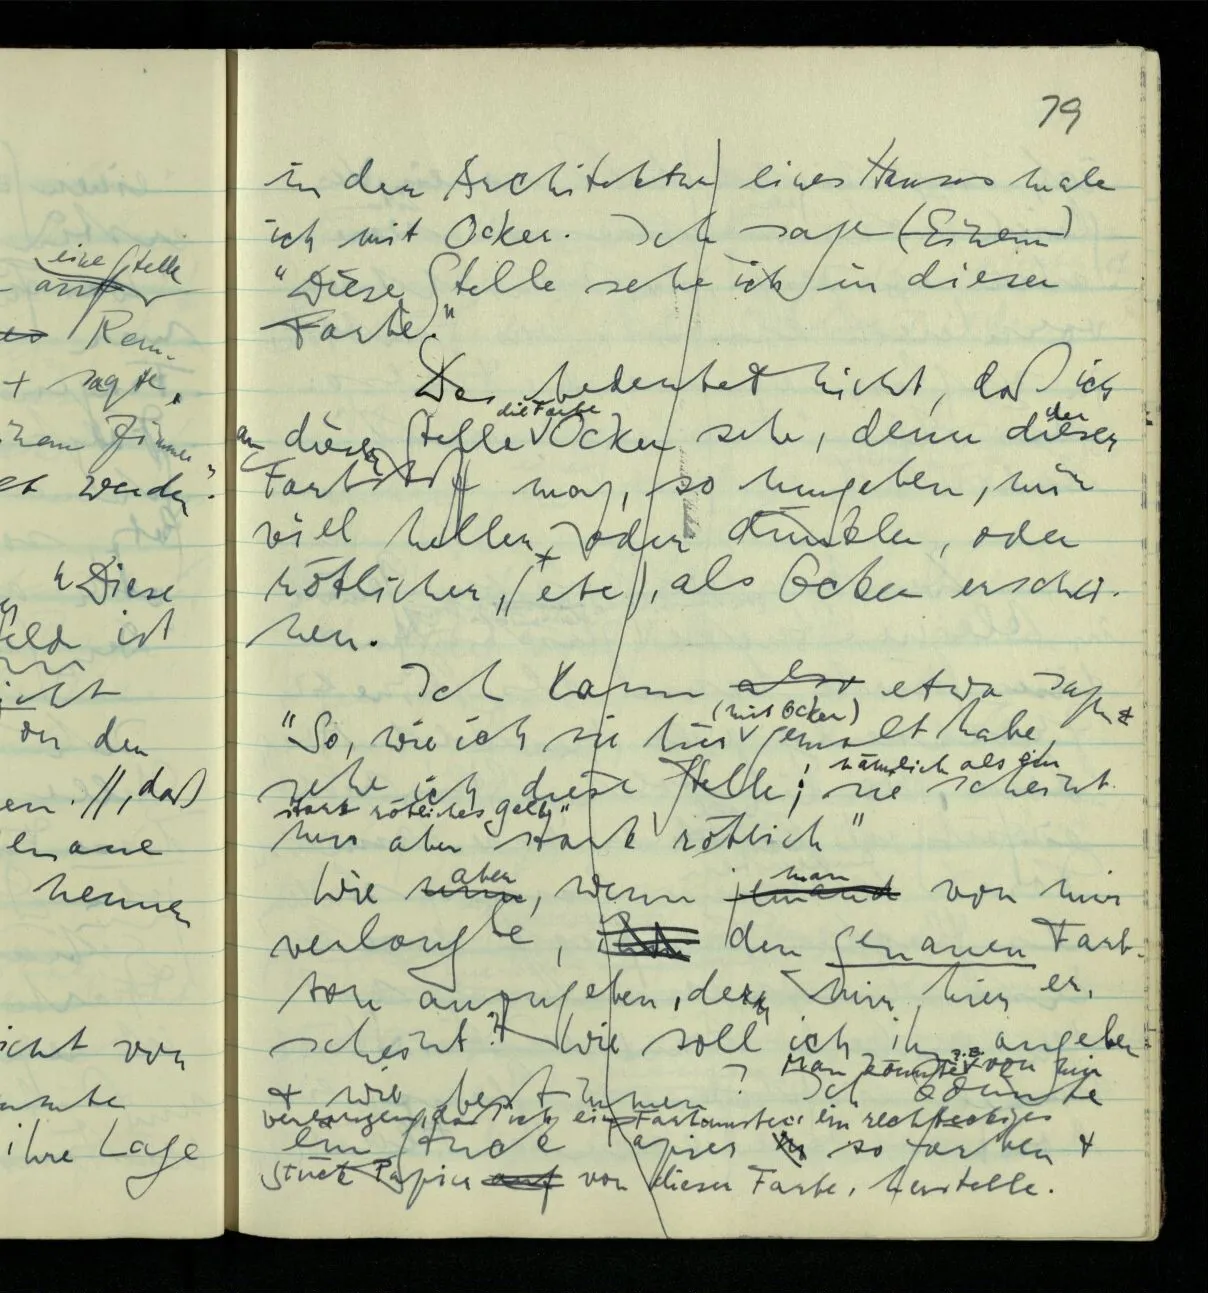 79
in der Architektur eines Hauses male
ich mit Ocker. Ich sage (Einem)
"Diese Stelle sehe ich in dieser
Farbe."
Das bedeutet nicht, daß ich
die Farbe
der
an dieser Stelle Ocker sehe, denn dieser
Farbstoff mag, so umgeben, mir
viel heller, oder dunkler, oder
rötlicher, (etc), als Ocker erschei-
nen.
Ich kann also etwa sagen
(mit Ocker)
"So, wie ich sie hier gemalt habe,
sehe ich diese Stelle; sie scheint
nämlich als ein
stark rötliches Gelb"
mir aber stark rötlich"
aber
man
Wie wenn, wenn jemand von mir
verlangte, den genauen Farb-
ton anzugeben, der mir hier er-
scheint? Wie soll ich ihn angeben
Man könnte z.B. von mir
& wie bestimmen? Ich könnte
verlangen, daß ich ein Farbmuster: ein rechteckiges
ein Stück Papier so färben &
Stück Papier auf von dieser Farbe, herstelle.
eine Stelle
auf
Rem-
+ sagte,
Zimmer
werden".
"Diese
ist
der den
en. //, daß
nennen
nicht von
ihre Lage